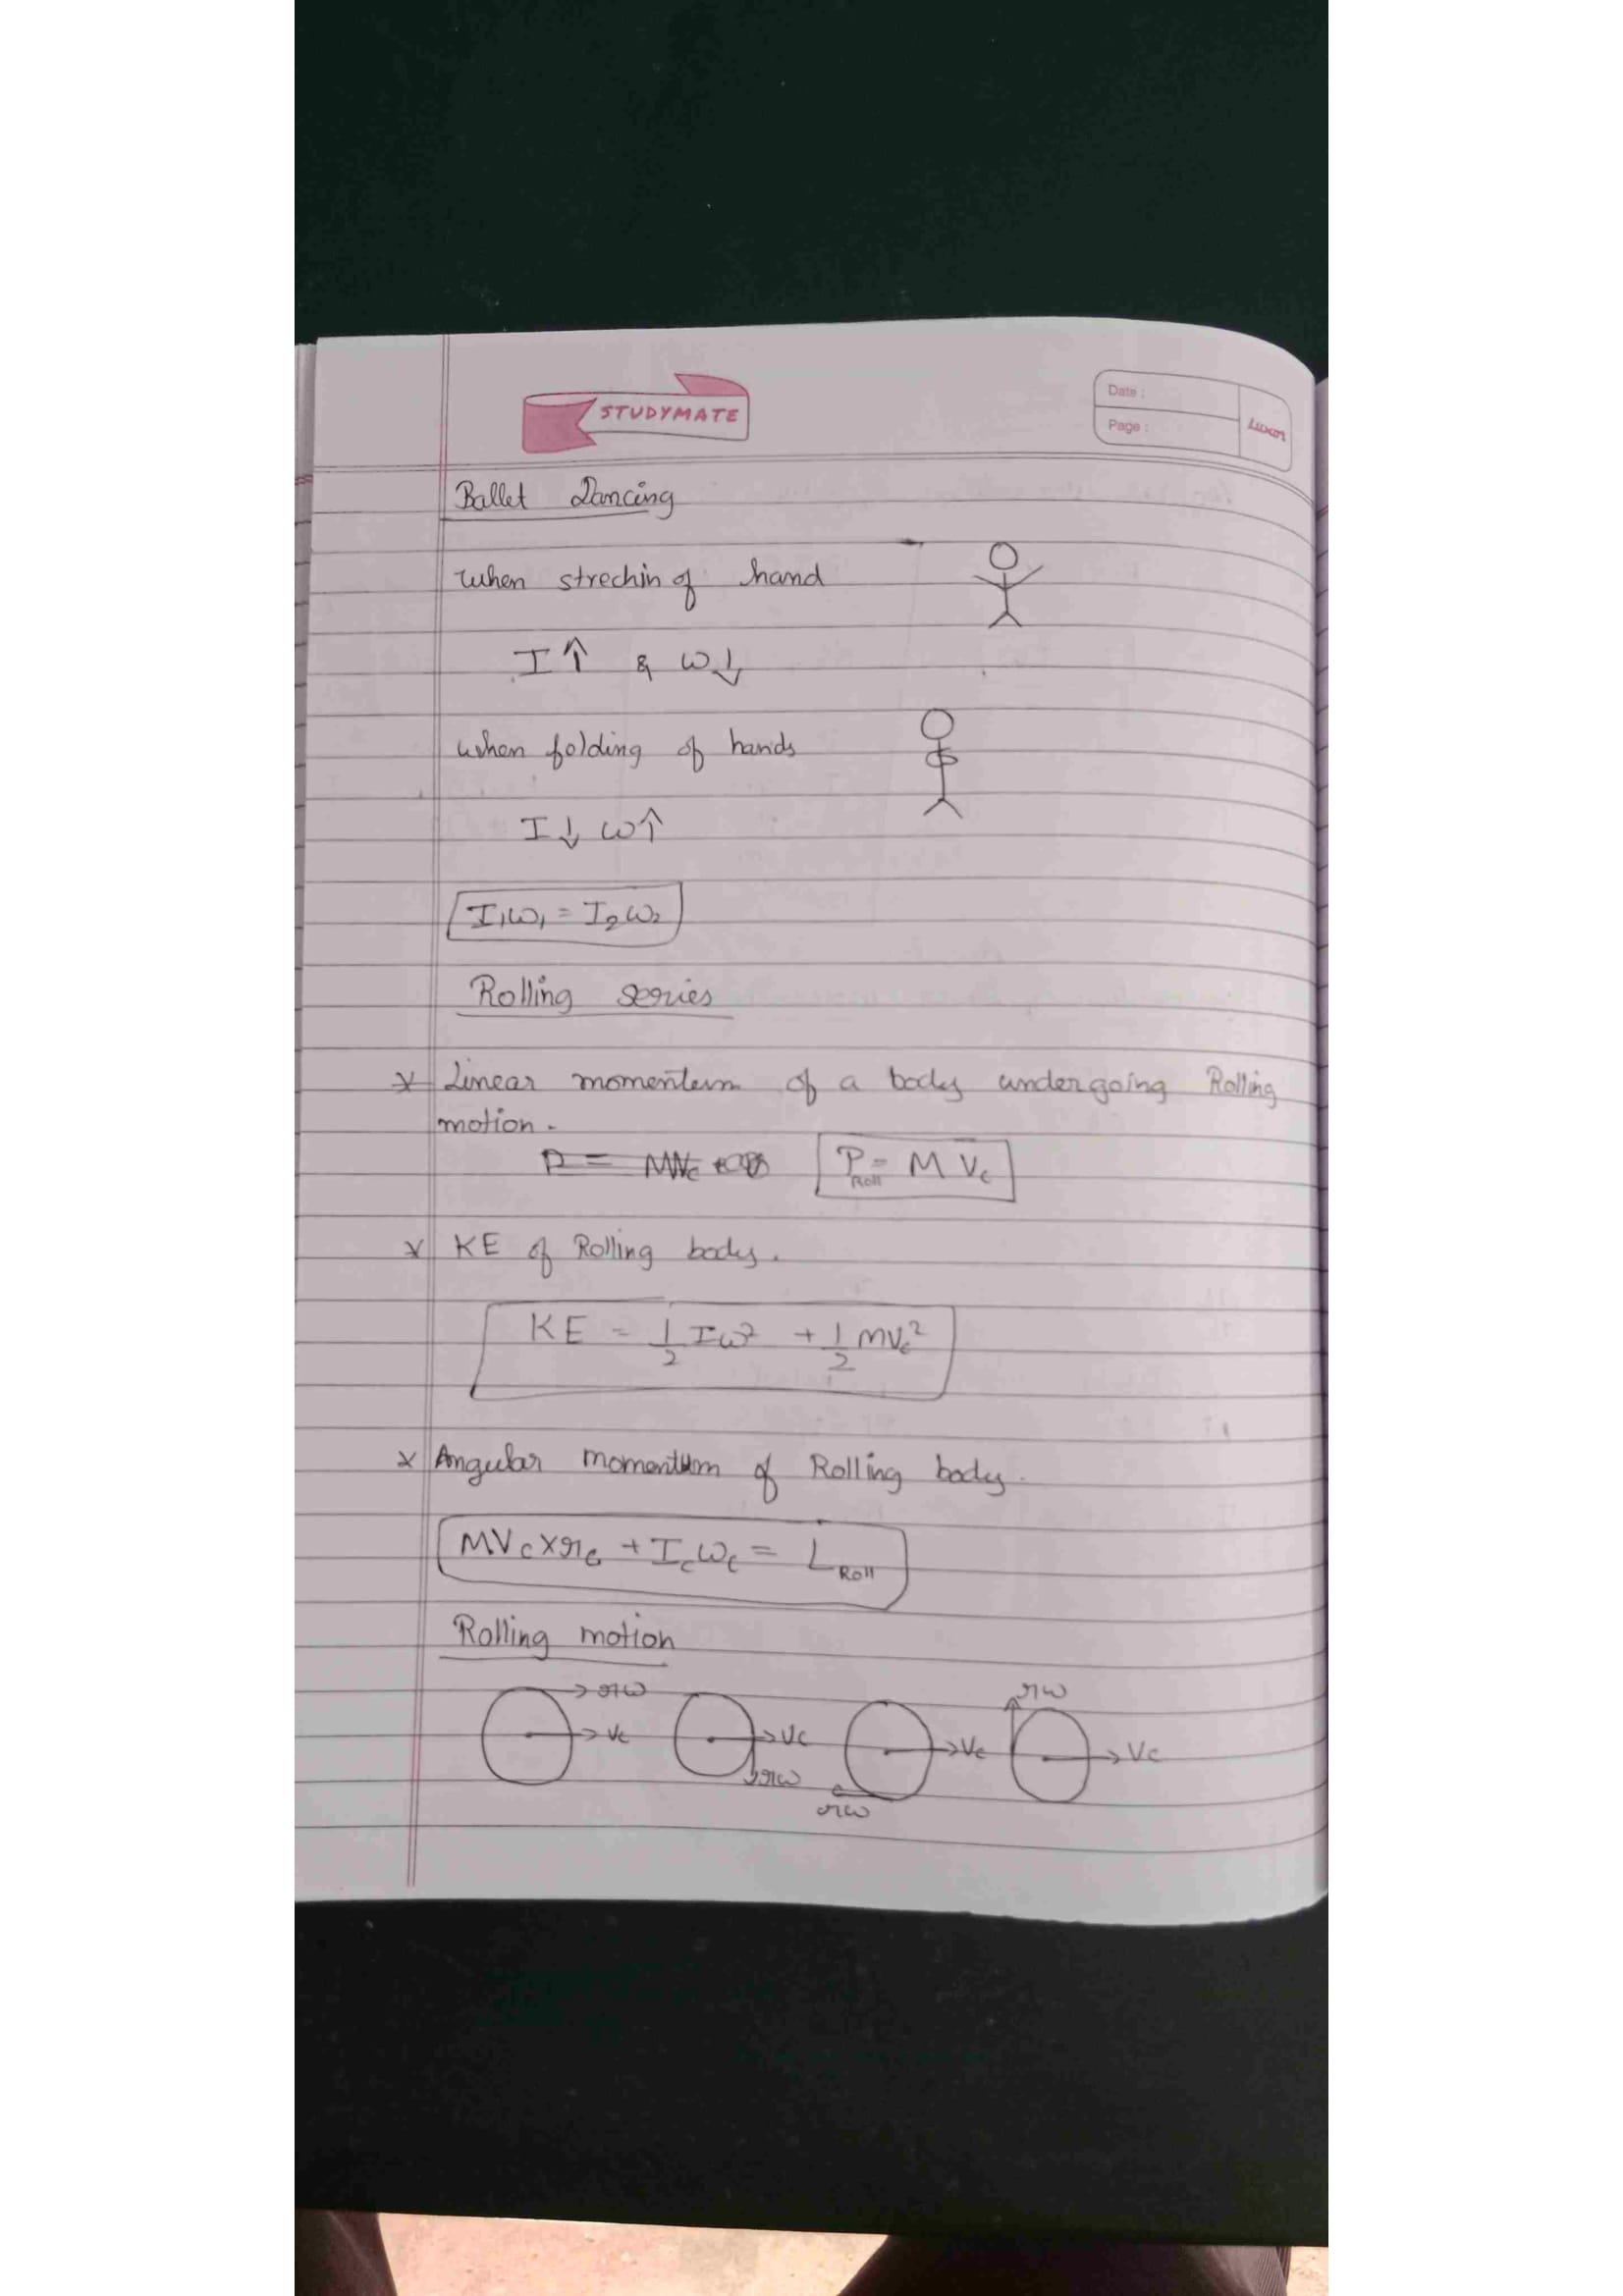 STUDYMATE
Date :
Page :
Luxor
Ballet Dancing
when strechin of hand
I↑ & ω↓
when folding of hands
I↓ ω↑
I₁ω₁ = I₂ω₂
Rolling series
* Linear momentum of a body undergoing Rolling
motion.
P_Roll = M V_c
* KE of Rolling body.
KE = 1/2 Iω² + 1/2 mv_c²
* Angular momentum of Rolling body.
MV_c × r_c + I_c ω_c = L_Roll
Rolling motion
rω rω
V_c V_c V_c V_c
rω
rω